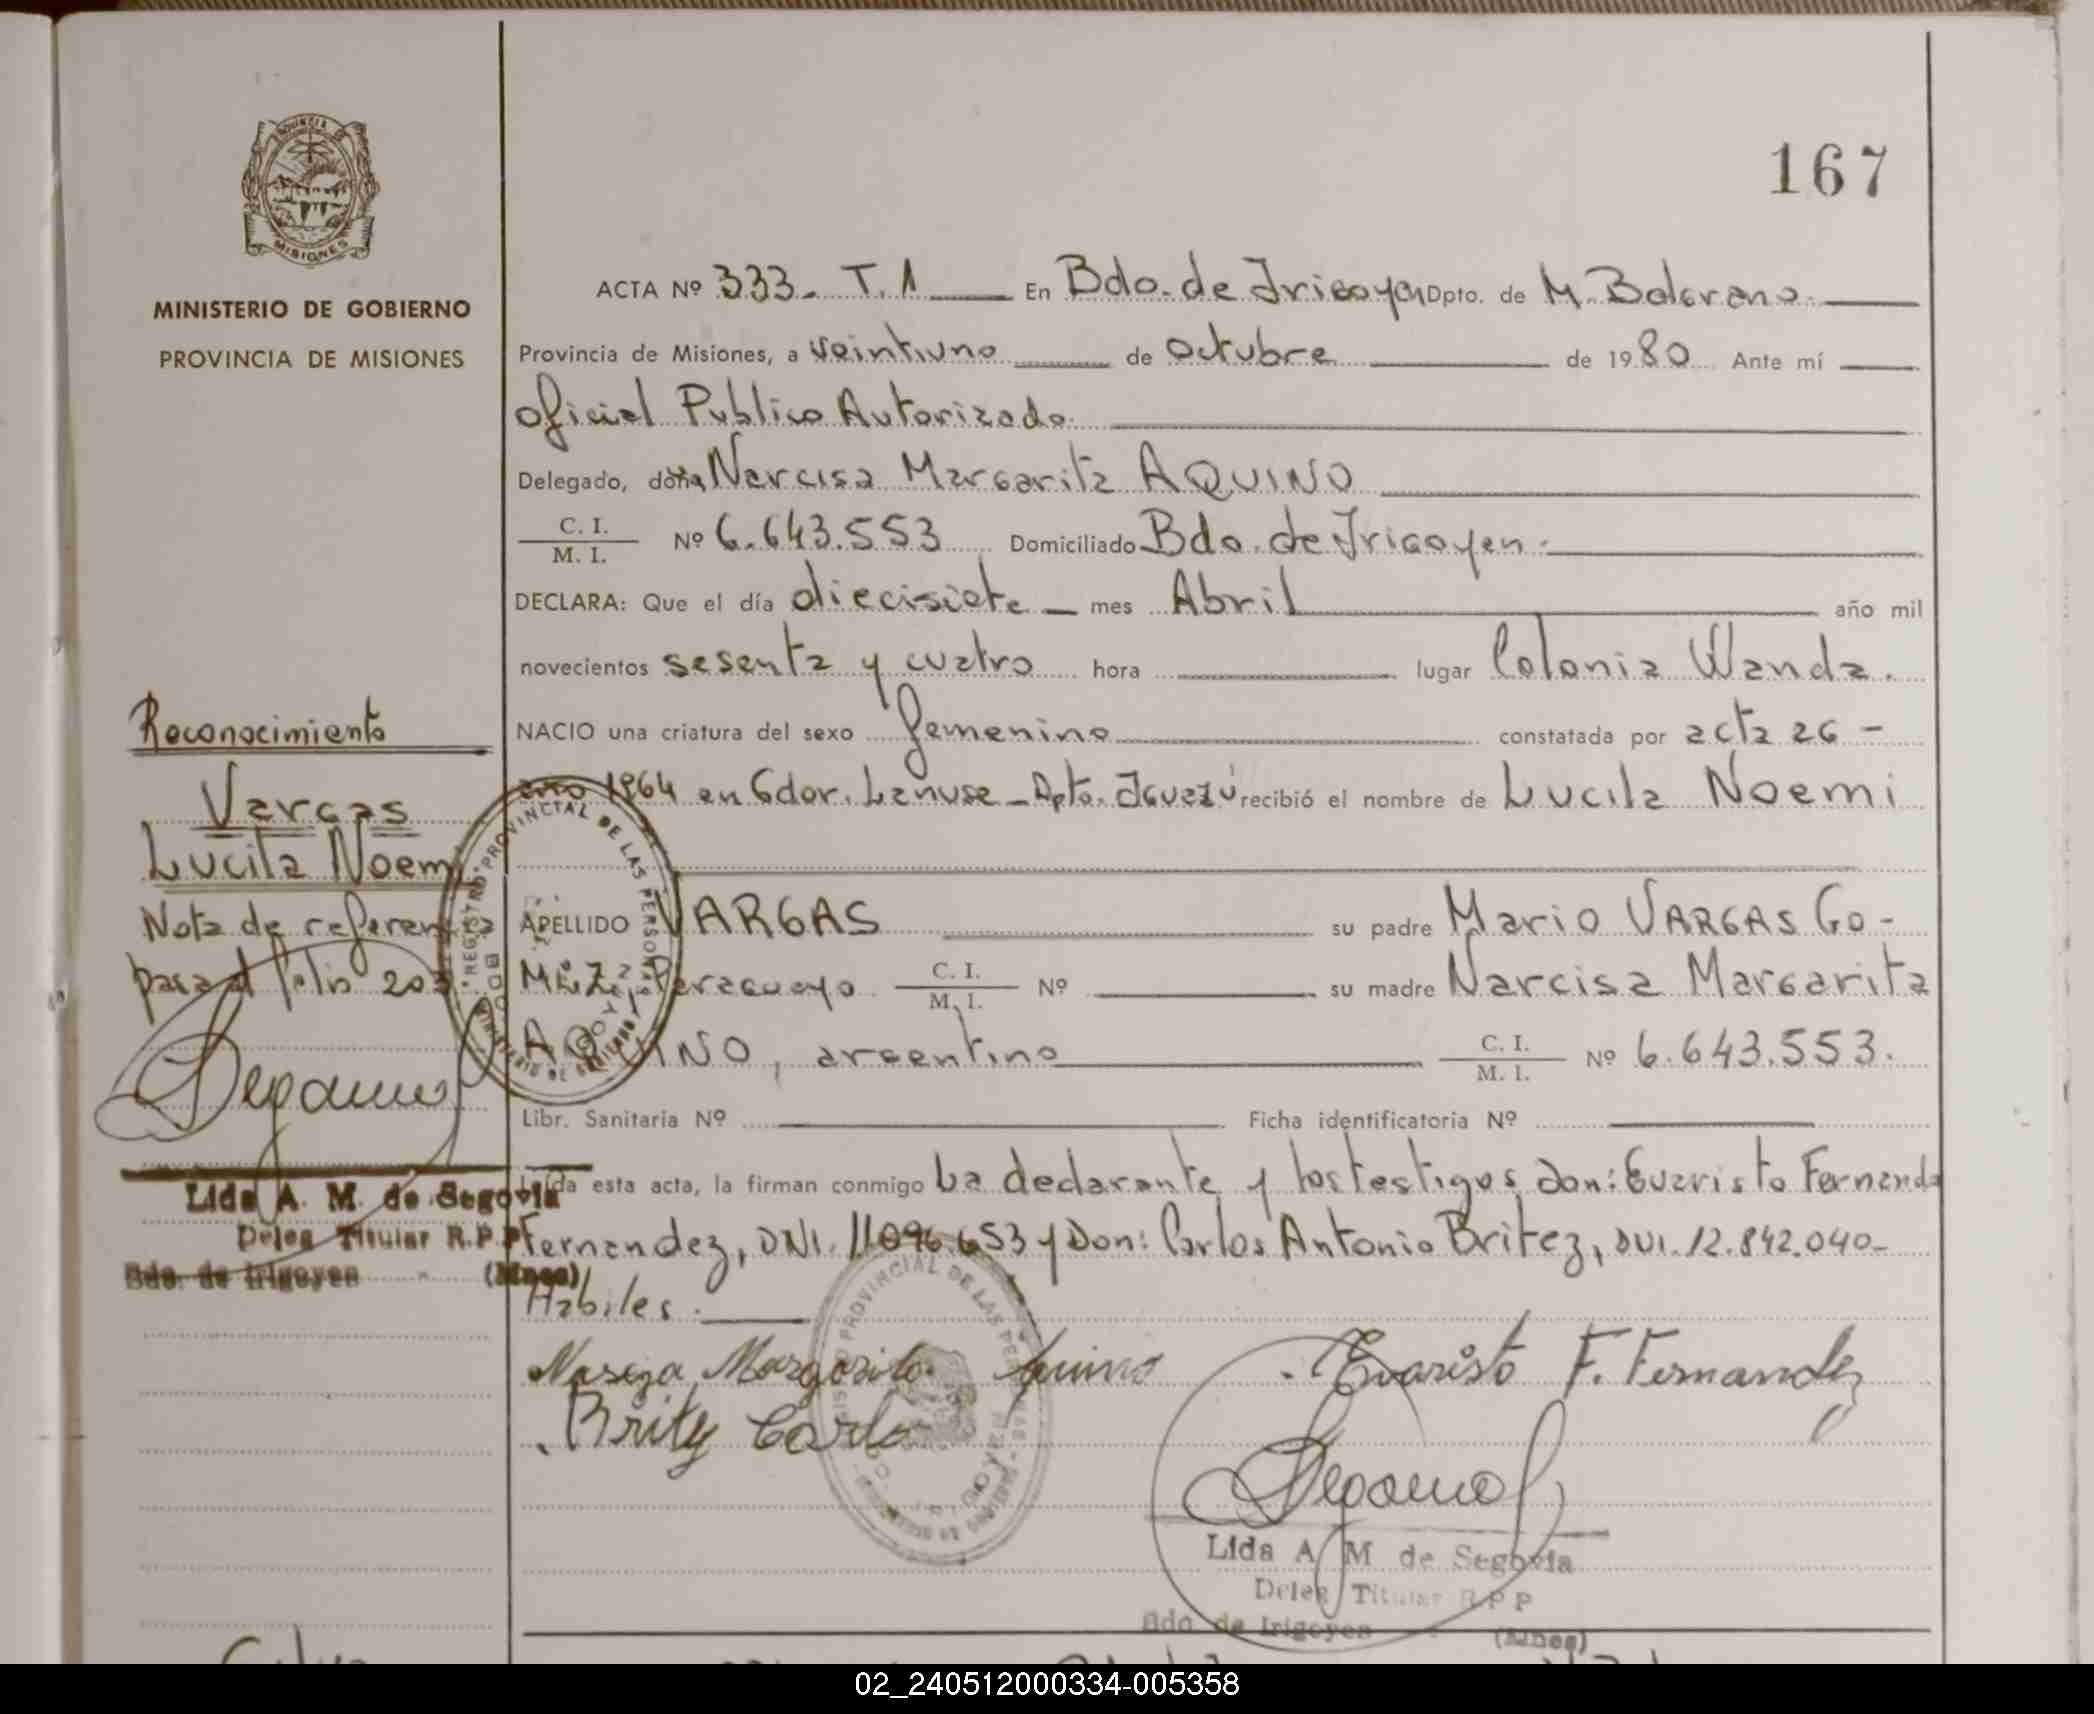 167
PROVINCIA DE
MISIONES
MINISTERIO DE GOBIERNO
PROVINCIA DE MISIONES
ACTA Nº 333. T. 1 En Bdo. de Irigoyen Dpto. de M. Belgrano.
Provincia de Misiones, a veintiuno de octubre de 1980 Ante mí
oficial Publico Autorizado.
Delegado, doña Narcisa Margarita AQUINO
C. I.
M. I. Nº 6.643.553 Domiciliado Bdo. de Irigoyen.
DECLARA: Que el día diecisiete mes Abril año mil
novecientos sesenta y cuatro hora lugar Colonia Wanda.
NACIO una criatura del sexo femenino constatada por acta 26 -
año 1964 en Gdor. Lanuse - Dpto. Iguazú recibió el nombre de Lucila Noemi
APELLIDO VARGAS su padre Mario VARGAS Go-
Meza, Paraguayo C. I. M. I. Nº su madre Narcisa Margarita
AQUINO, argentina C. I. M. I. Nº 6.643.553.
Libr. Sanitaria Nº Ficha identificatoria Nº
Leída esta acta, la firman conmigo La declarante y los testigos Don: Evaristo Fernando
Fernandez, DNI. 11.096.653 y Don: Carlos Antonio Britez, DNI. 12.842.040-
Habiles.
Narciza Margarita Aquino Evaristo F. Fernandez
Britez Carlo
Lida A M de Segovia
Deleg Titular R.P.P
Bdo de Irigoyen (Mnes)
Reconocimiento
Vargas
Lucila Noemi
Nota de referencia
pasa al folio 203.
Lida A. M. de Segovia
Deleg Titular R.P.P
Bdo. de Irigoyen (Mnes)
REGISTRO PROVINCIAL DE LAS PERSONAS
MINISTERIO DE GOBIERNO
REGISTRO PROVINCIAL DE LAS PERSONAS
02_240512000334-005358